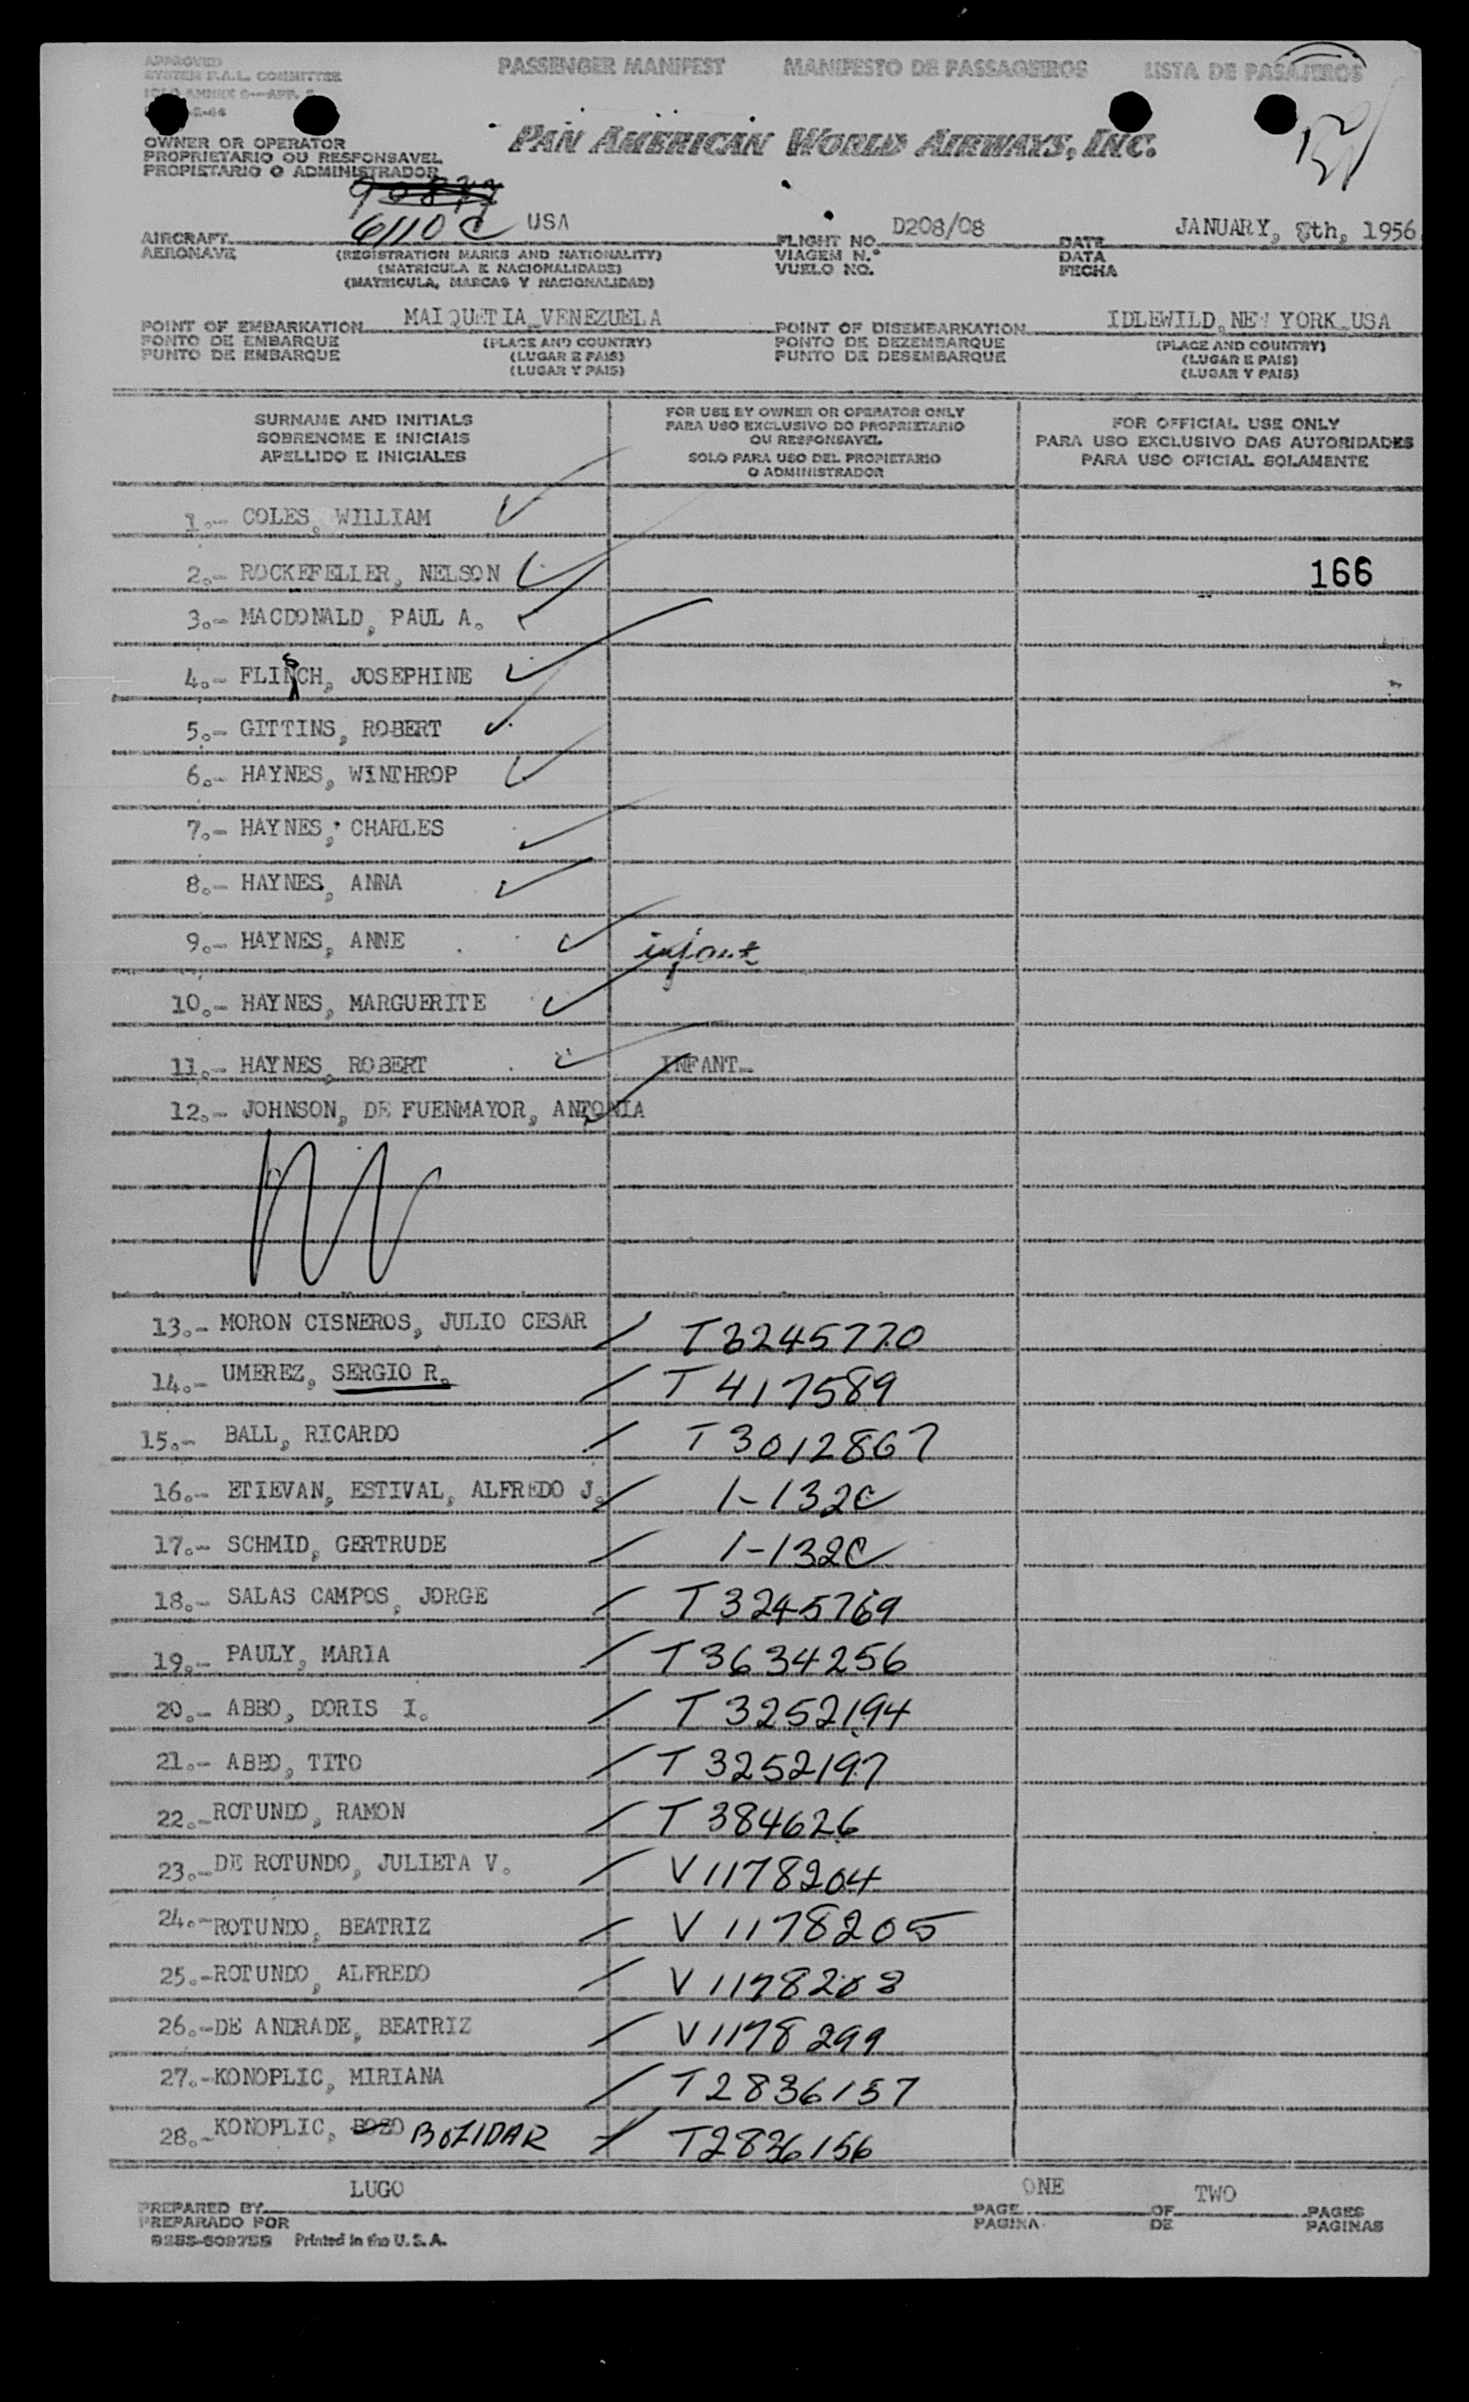 APPROVED
SYSTEM F.A.L. COMMITTEE
PASSENGER MANIFEST MANIFESTO DE PASSAGEIROS LISTA DE PASAJEROS
PAN AMERICAN WORLD AIRWAYS, INC.
OWNER OR OPERATOR
PROPRIETARIO OU RESPONSAVEL
PROPIETARIO O ADMINISTRADOR
6110C USA
AIRCRAFT
AERONAVE
(REGISTRATION MARKS AND NATIONALITY)
(MATRICULA E NACIONALIDADE)
(MATRICULA, MARCAS Y NACIONALIDAD)
FLIGHT NO. D208/08
VIAGEM N.º
VUELO NO.
DATE JANUARY, 8th, 1956
DATA
FECHA
POINT OF EMBARKATION MAIQUETIA VENEZUELA
PONTO DE EMBARQUE
PUNTO DE EMBARQUE
(PLACE AND COUNTRY)
(LUGAR E PAIS)
(LUGAR Y PAIS)
POINT OF DISEMBARKATION IDLEWILD, NEW YORK USA
PONTO DE DEZEMBARQUE
PUNTO DE DESEMBARQUE
(PLACE AND COUNTRY)
(LUGAR E PAIS)
(LUGAR Y PAIS)
SURNAME AND INITIALS
SOBRENOME E INICIAIS
APELLIDO E INICIALES
FOR USE BY OWNER OR OPERATOR ONLY
PARA USO EXCLUSIVO DO PROPRIETARIO
OU RESPONSAVEL
SOLO PARA USO DEL PROPIETARIO
O ADMINISTRADOR
FOR OFFICIAL USE ONLY
PARA USO EXCLUSIVO DAS AUTORIDADES
PARA USO OFICIAL SOLAMENTE
1.- COLES, WILLIAM
2.- ROCKEFELLER, NELSON 166
3.- MACDONALD, PAUL A.
4.- FLINSCH, JOSEPHINE
5.- GITTINS, ROBERT
6.- HAYNES, WINTHROP
7.- HAYNES, CHARLES
8.- HAYNES, ANNA
9.- HAYNES, ANNE infant
10.- HAYNES, MARGUERITE
11.- HAYNES, ROBERT INFANT
12.- JOHNSON, DE FUENMAYOR, ANTONIA
13.- MORON CISNEROS, JULIO CESAR T3245770
14.- UMEREZ, SERGIO R. T417589
15.- BALL, RICARDO T3012867
16.- ETIEVAN, ESTIVAL, ALFREDO J. 1-132C
17.- SCHMID, GERTRUDE 1-132C
18.- SALAS CAMPOS, JORGE T3245769
19.- PAULY, MARIA T3634256
20.- ABBO, DORIS I. T3252194
21.- ABBO, TITO T3252197
22.- ROTUNDO, RAMON T384626
23.- DE ROTUNDO, JULIETA V. V1178204
24.- ROTUNDO, BEATRIZ V1178205
25.- ROTUNDO, ALFREDO V1178203
26.- DE ANDRADE, BEATRIZ V1178299
27.- KONOPLIC, MIRIANA T2836157
28.- KONOPLIC, BOZO BOZIDAR T2836156
PREPARED BY LUGO
PREPARADO POR
PAGE ONE OF TWO PAGES
PAGINA DE PAGINAS
Printed in the U.S.A.